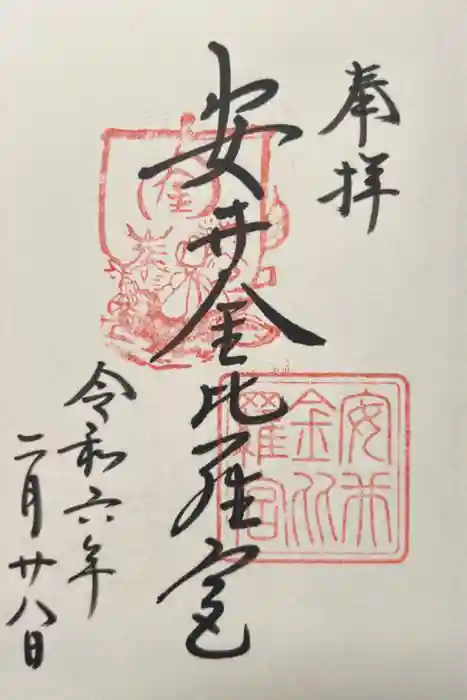 奉拝
安井金比羅宮
令和六年
二月廿八日
安井
金比
羅宮